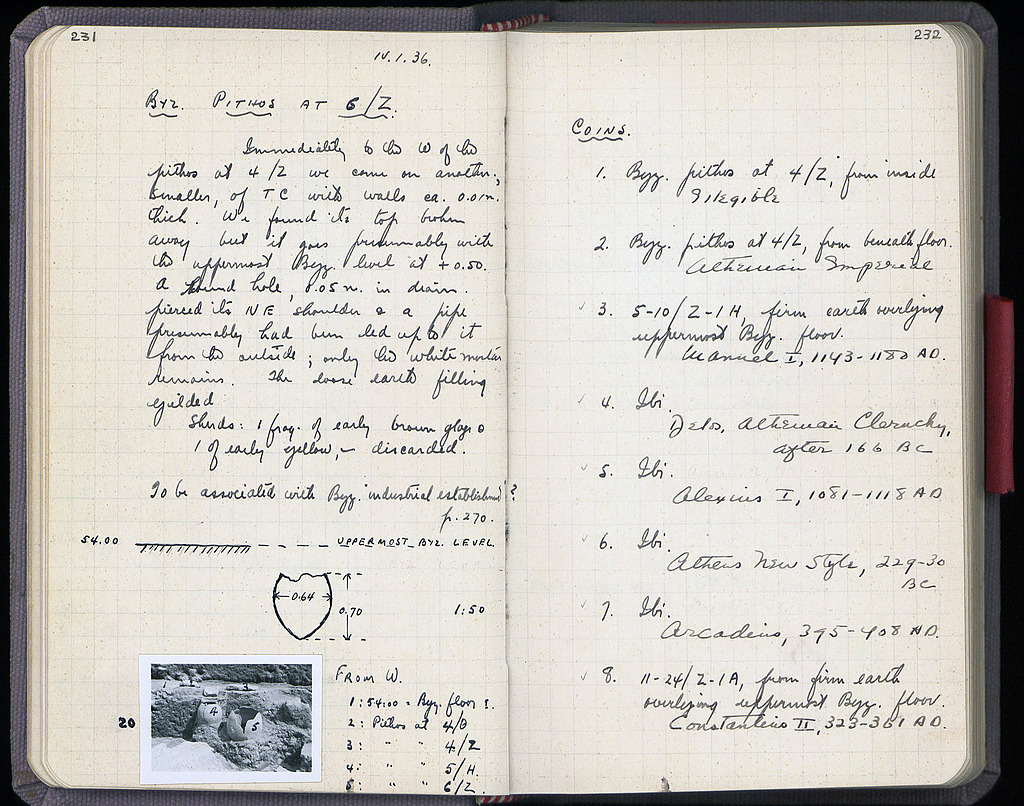 231
IV.1.36.
BYZ. PITHOS AT 6/Z.
Immediately to the W of the
pithos at 4/Z we came on another,
smaller, of TC with walls ca. 0.01m.
thick. We found its top broken
away but it goes presumably with
the uppermost Byz. level at +0.50.
A round hole, 0.05 m. in diam.
pierced its NE shoulder & a pipe
presumably had been led up to it
from the outside; only the white mortar
remains. The loose earth filling
yielded
Sherds: 1 frag. of early brown glaze &
1 of early yellow, – discarded.
To be associated with Byz. industrial establishment?
p. 270.
54.00 UPPERMOST BYZ. LEVEL.
0.64
0.70
1:50
FROM W.
1: 54.00 = Byz. floor
2: Pithos at 4/Θ
3: " " 4/Z
4: " " 5/H.
5: " " 6/Z.
4
5
20
232
COINS.
1. Byz. pithos at 4/Z, from inside
Illegible
2. Byz. pithos at 4/Z, from beneath floor.
Athenian Imperial
3. 5-10/Z-1H, firm earth overlying
uppermost Byz. floor.
Manuel I, 1143-1180 AD.
4. Ibi.
Delos, Athenian Cleruchy,
after 166 BC
5. Ibi.
Alexius I, 1081-1118 AD
6. Ibi.
Athens New Style, 229-30
BC
7. Ibi.
Arcadius, 395-408 AD.
8. 11-24/Z-1A, from firm earth
overlying uppermost Byz. floor.
Constantius II, 323-361 AD.